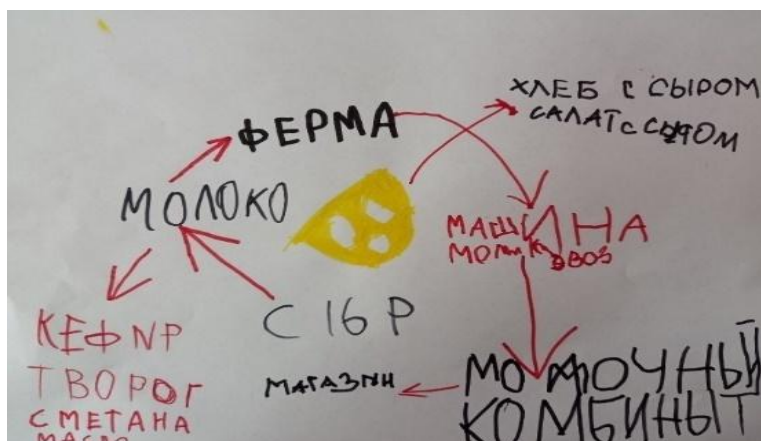 ХЛЕБ С СЫРОМ
САЛАТ С СЫРОМ
ФЕРМА
МОЛОКО
МАШИНА
МОЛОКОВОЗ
СIБР
КЕФИР
ТВОРОГ
СМЕТАНА
МАСЛО
МАГАЗИН
МОЛОЧНЫЙ
КОМБИНЫТ